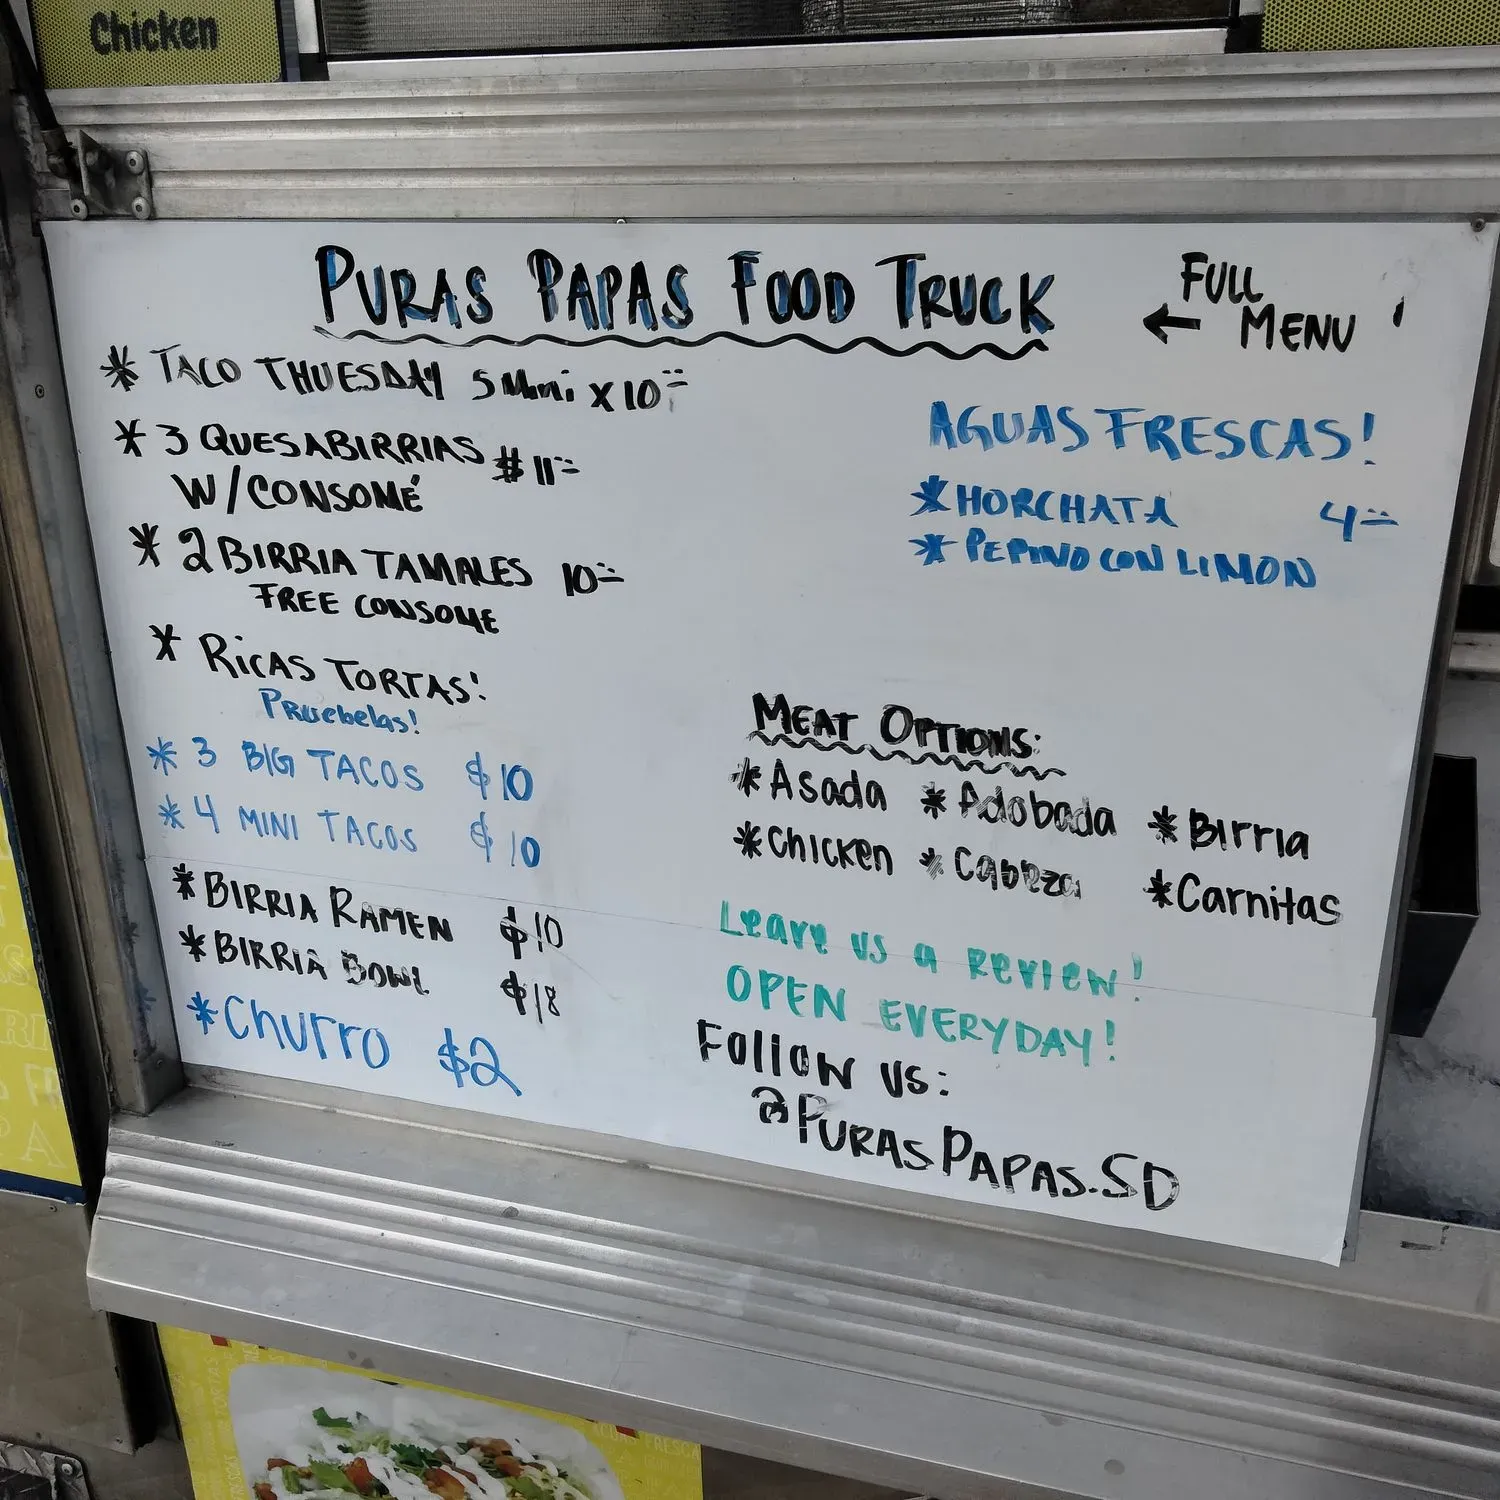 Chicken
PURAS PAPAS FOOD TRUCK
← FULL
MENU
* TACO THUESDAY 5 Mini x 10
* 3 QUESABIRRIAS # 11
W/CONSOMÉ
* 2 BIRRIA TAMALES 10
FREE CONSOME
* RICAS TORTAS!
Pruebelas!
* 3 BIG TACOS $10
* 4 MINI TACOS $10
* BIRRIA RAMEN $10
* BIRRIA BOWL $18
* Churro $2
AGUAS FRESCAS!
* HORCHATA 4
* PEPINO CON LIMON
MEAT OPTIONS:
* Asada * Adobada * Birria
* Chicken * Cabeza * Carnitas
Leave us a review!
OPEN EVERYDAY!
Follow us:
@PURASPAPAS.SD